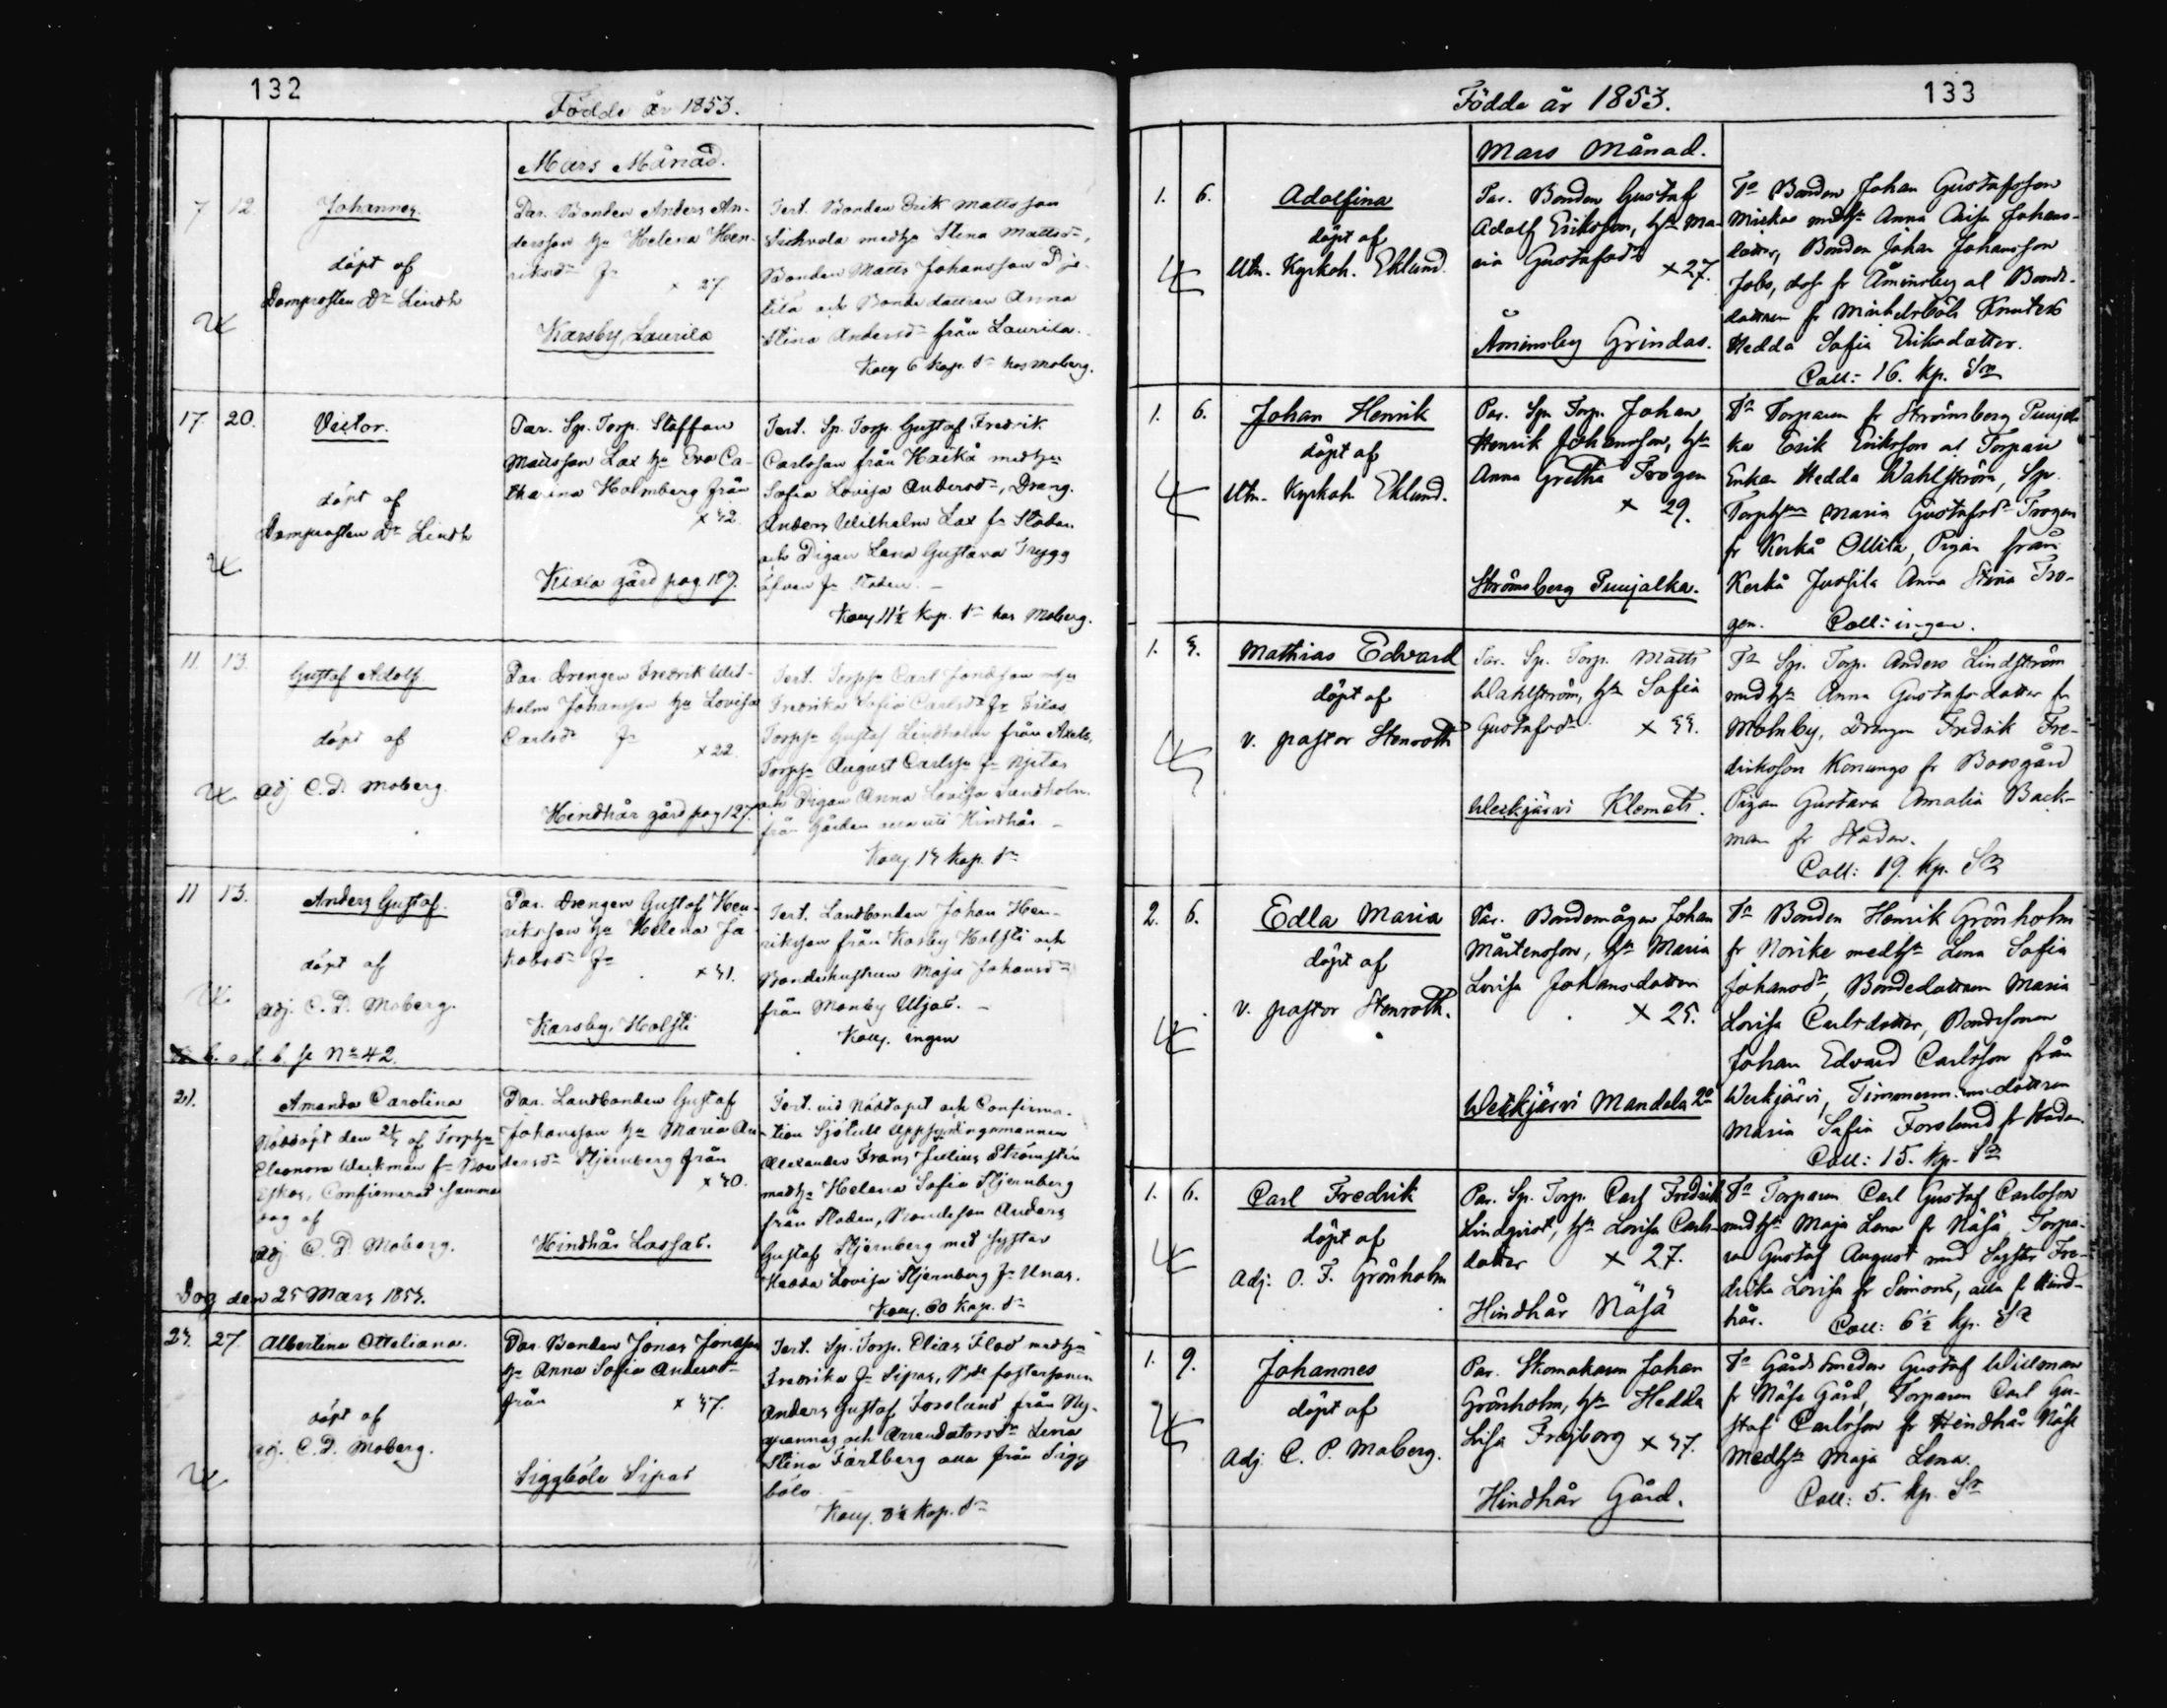 132
Födde år 1853.
Mars Månad.
7 12. Johannes.
döpt af
Domprosten Dr Lindh
Par. Bonden Anders An-
dersson hu Helena Hen-
riksdr fr
× 27
Karsby, Laurila
Test. Bonden Erik Mattsson
Sickvola medhu Stina Mattsdr,
Bonden Matts Johansson
och Bonde dottren Anna
Stina Andersdr från Laurila.
Koll 6 kop. Sr hos Moberg.
17. 20. Victor.
döpt af
Domprosten Dr Lindh
Par. Sp. Torp. Staffan
Mattsson Lax hu Eva Ca-
tharina Holmberg från
× 42.
Kiala gård pag 189.
Test. Sp. Torp. Gustaf Fredrik
Carlsson från Haikå medhu
Sofia Lovisa Andersdr, Dräng.
Anders Wilhelm Lax fr Staden
och Pigan Lena Gustava Trygg
äfven fr Staden. –
Koll 11½ kop. Sr hos Moberg.
11. 13. Gustaf Adolf
döpt af
Adj C. P. Moberg.
Par. Drengen Fredrik Wil-
helm Johansson hu Lovisa
Carlsdr fr
× 22.
Hindhår gård pag 127.
Test. Torpn Carl Jonasson mhu
Fredrika Sofia Carlsdr fr Silas
Torpn Gustaf Lindholm från Axels,
Torpn August Carlssn fr Nytas
och Pigan Anna Lovisa Sundholm
från Gården alla uti Hindhår –
Koll. 14 kop. Sr
11 13. Anders Gustaf.
döpt af
Adj. C. P. Moberg.
b. o. f. b. se No 42.
Par. Drengen Gustaf Hen-
riksson hu Helena Ja-
kobsdr fr
× 41.
Karsby, Holsti
Test. Landbonden Johan Hen-
riksson från Karsby Holsti och
Bondehustrun Maja Johansdr
från Monby Uljas. –
Koll. ingen
21. Amanda Carolina
Nöddöpt den 21/3 af Torphu
Eleonora Weckman fr
Confirmerad samma
dag af
Adj C. P. Moberg.
Dog den 25 Mars 1853.
Par. Landbonden Gustaf
Johansson hu Maria An-
dersdr Stjernberg från
× 40.
Hindhår Lassas.
Test. vid Nöddopet och Confirma-
tion Sjötull Uppsyningsmannen
Alexander Frans Julius Strömsten
medhu Helena Sofia Stjernberg
från Staden, Bondeson Anders
Gustaf Stjernberg med syster
Hedda Lovisa Stjernberg fr Unas.
Koll. 60 Kop. Sr
24. 27. Albertina Otteliana.
döpt af
adj. C. P. Moberg.
Par. Bonden Jonas Jonasson
hu Anna Sofia Andersdr
från
× 47.
Siggböle Sipas
Test. Sp. Torp. Elias Flod medhu
Fredrika fr Sipas, Bde fostersonen
Anders Gustaf Forslund från Ny-
grannas och Arrendatorsdr Lena
Stina Färtberg alla från Sigg
böle
Koll. 8½ Kop. Sr
133
Födde år 1853.
Mars Månad.
1. 6. Adolfina
döpt af
Utn. Kyrkoh. Eklund.
Par. Bonden Gustaf
Adolf Eriksson, hu Ma-
ria Gustafsdr
× 27.
Åminsby Grindas.
Tr Bonden Johan Gustafsson
Mickos medhu Anna Caisa Johans-
dotter, Bonden Johan Johansson
Jobs, desse fr Åminsby al Bonde-
dottren fr Mickelsböle Knuters
Hedda Sofia Eriksdotter.
Coll: 16. kp. Sr
1. 6. Johan Henrik
döpt af
Utn. Kyrkoh. Eklund.
Par. Spn Torp. Johan
Henrik Johansson, hu
Anna Gretha Frogen
× 29.
Strömsberg Punjalka.
Tr Torparen fr Strömsberg Punjal-
ka Erik Eriksson al Torpare
Enkan Hedda Wahlström, Sp.
Torphun Maria Gustafsdr Frogen
fr Kerkå Ollila, Pigan från
Kerkå Jussila Anna Stina Fro-
gen. Coll: ingen.
1. 3. Mathias Edvard
döpt af
v. pastor Stenroth
Par. Sp. Torp. Matts
Wahlström, hu Sofia
Gustafsdr × 33.
Weckjärvi Klemets.
Tr Sp. Torp. Anders Lindström
med hu Anna Gustafs dotter fr
Molnby, Drengen Fredrik Fre-
driksson Konungs fr Boisgård
Pigan Gustava Amalia Back-
man fr Staden.
Coll: 19. kp. Sr
2. 6. Edla Maria
döpt af
v. pastor Stenroth.
Par. Bondemågen Johan
Mårtensson, hu Maria
Lovisa Johansdotter
× 25.
Weckjärvi Mandels 2o
Tr Bonden Henrik Grönholm
fr Norike medhu Lena Sofia
Johansdr, Bondedottren Maria
Lovisa Carlsdotter, Bondesonen
Johan Edvard Carlsson från
Weckjärvi, Timmerm:ns dottren
Maria Sofia Forslund fr Staden.
Coll: 15. kp. Sr
1. 6. Carl Fredrik
döpt af
Adj. O. F. Grönholm
Par. Sp. Torp. Carl Fredrik
Lindqvist, hu Lovisa Carls-
dotter × 27.
Hindhår Näsä
Tr Torparen Carl Gustaf Carlsson
medhu Maja Lena fr Näsä, Torpa-
ren Gustaf August med Syster Fre-
drika Lovisa fr Simons, alla fr Hind-
hår. Coll: 6½ kp. Sr
1. 9. Johannes
döpt af
Adj C. P. Moberg.
Par. Skomakaren Johan
Grönholm, hu Hedda
Lisa Frejborg × 47.
Hindhår Gård.
Tr Gårdssmeden Gustaf Widman
fr Näse Gård, Torparen Carl Gu-
staf Carlsson fr Hindhår Näse
Medhu Maja Lena.
Coll: 5. kp. Sr